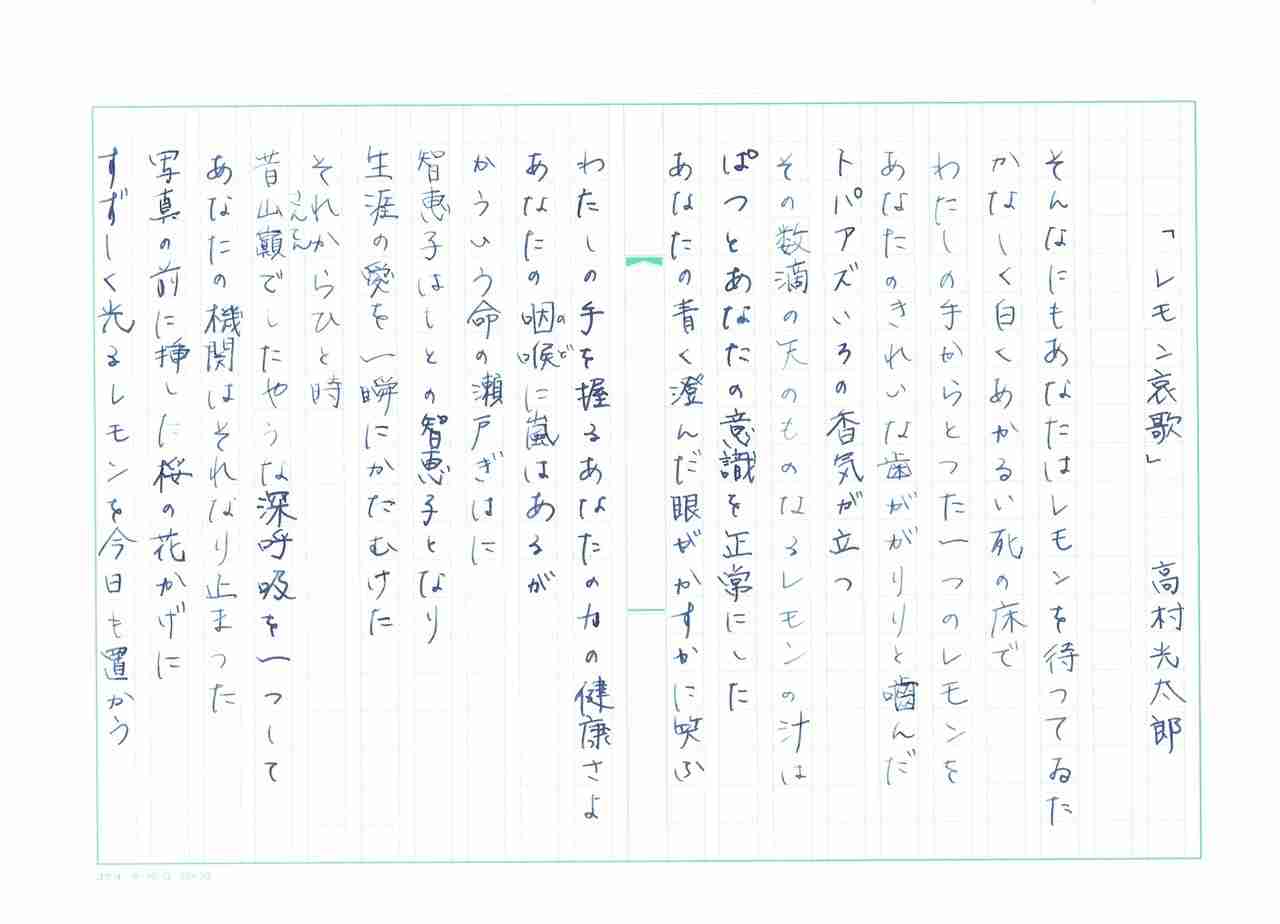 「レモン哀歌」　高村光太郎
そんなにもあなたはレモンを待つてゐた
かなしく白くあかるい死の床で
わたしの手からとつた一つのレモンを
あなたのきれいな歯ががりりと噛んだ
トパアズいろの香気が立つ
その数滴の天のものなるレモンの汁は
ぱつとあなたの意識を正常にした
あなたの青く澄んだ眼がかすかに笑ふ
わたしの手を握るあなたの力の健康さよ
あなたの咽喉に嵐はあるが
のど
かういう命の瀬戸ぎはに
智恵子はもとの智恵子となり
生涯の愛を一瞬にかたむけた
それからひと時
昔山巓でしたやうな深呼吸を一つして
さんてん
あなたの機関はそれなり止まつた
写真の前に挿した桜の花かげに
すずしく光るレモンを今日も置かう